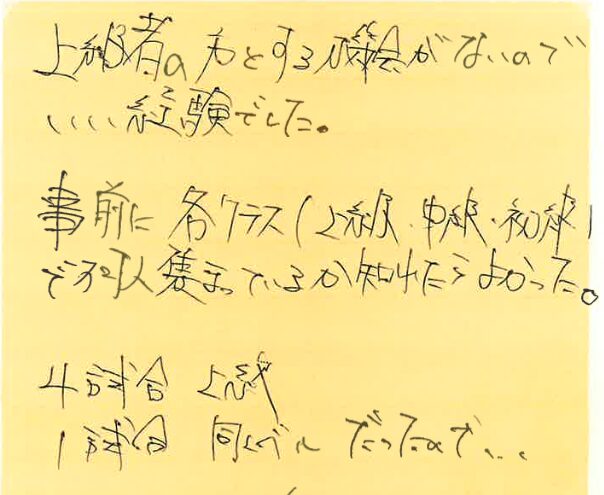 上級者の方とする機会がないので
いい経験でした。
事前に各クラス(上級・中級・初級)
で何人集まっているか知れたらよかった。
4試合 上級
1試合 同レベル だったので...